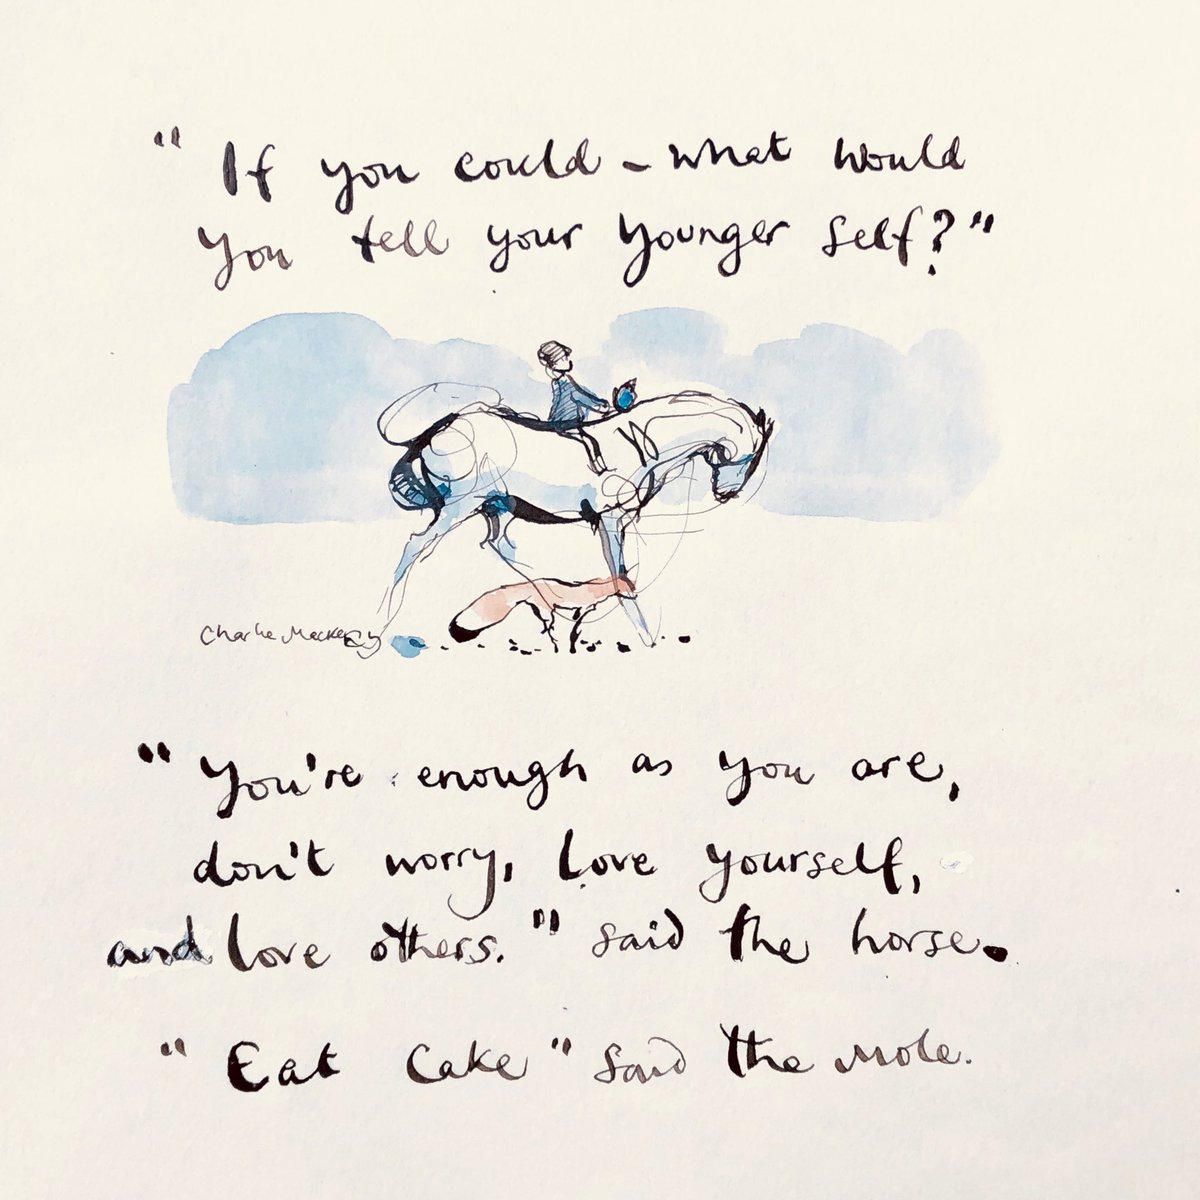 " If you could - what would
you tell your younger self? "
Charlie Mackesy
" You're enough as you are,
don't worry, love yourself,
and love others. " said the horse.
" Eat Cake " said the mole.